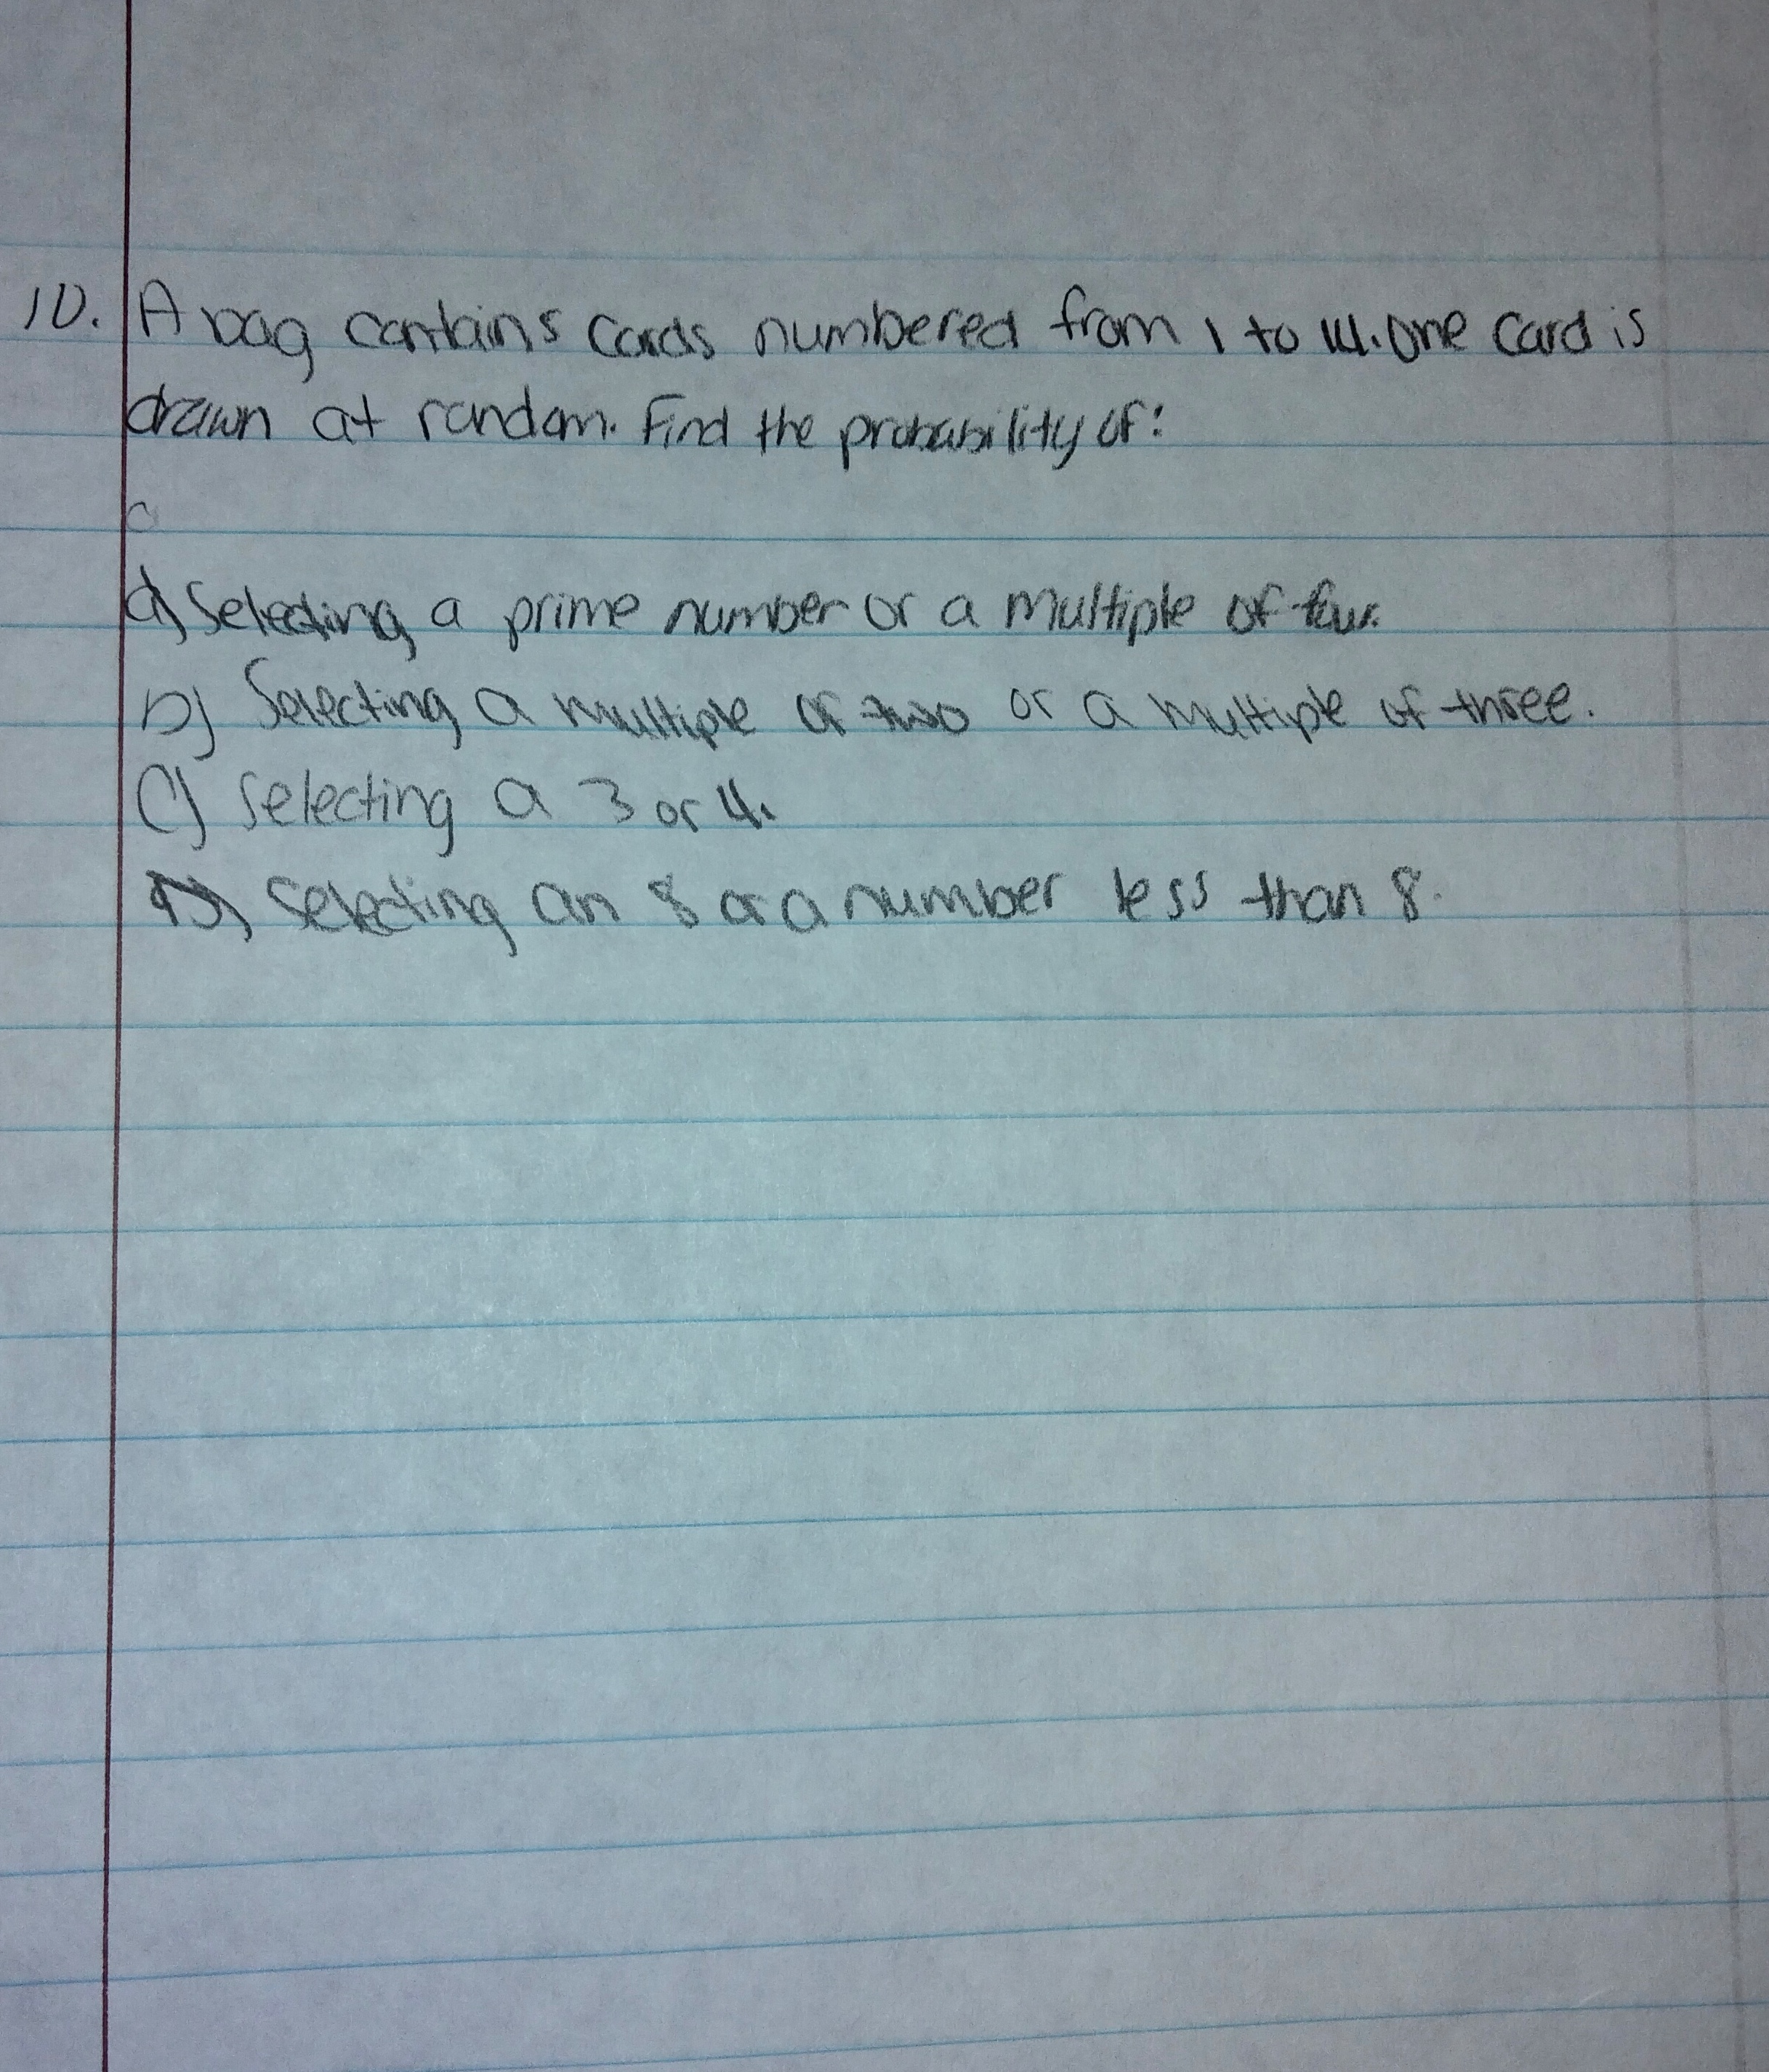 10. A bag contains cards numbered from 1 to 14. One card is
drawn at random. Find the probability of:
c
a) Selecting a prime number or a multiple of four.
b) Selecting a multiple of two or a multiple of three.
c) Selecting a 3 or 4.
D) Selecting an 8 or a number less than 8.